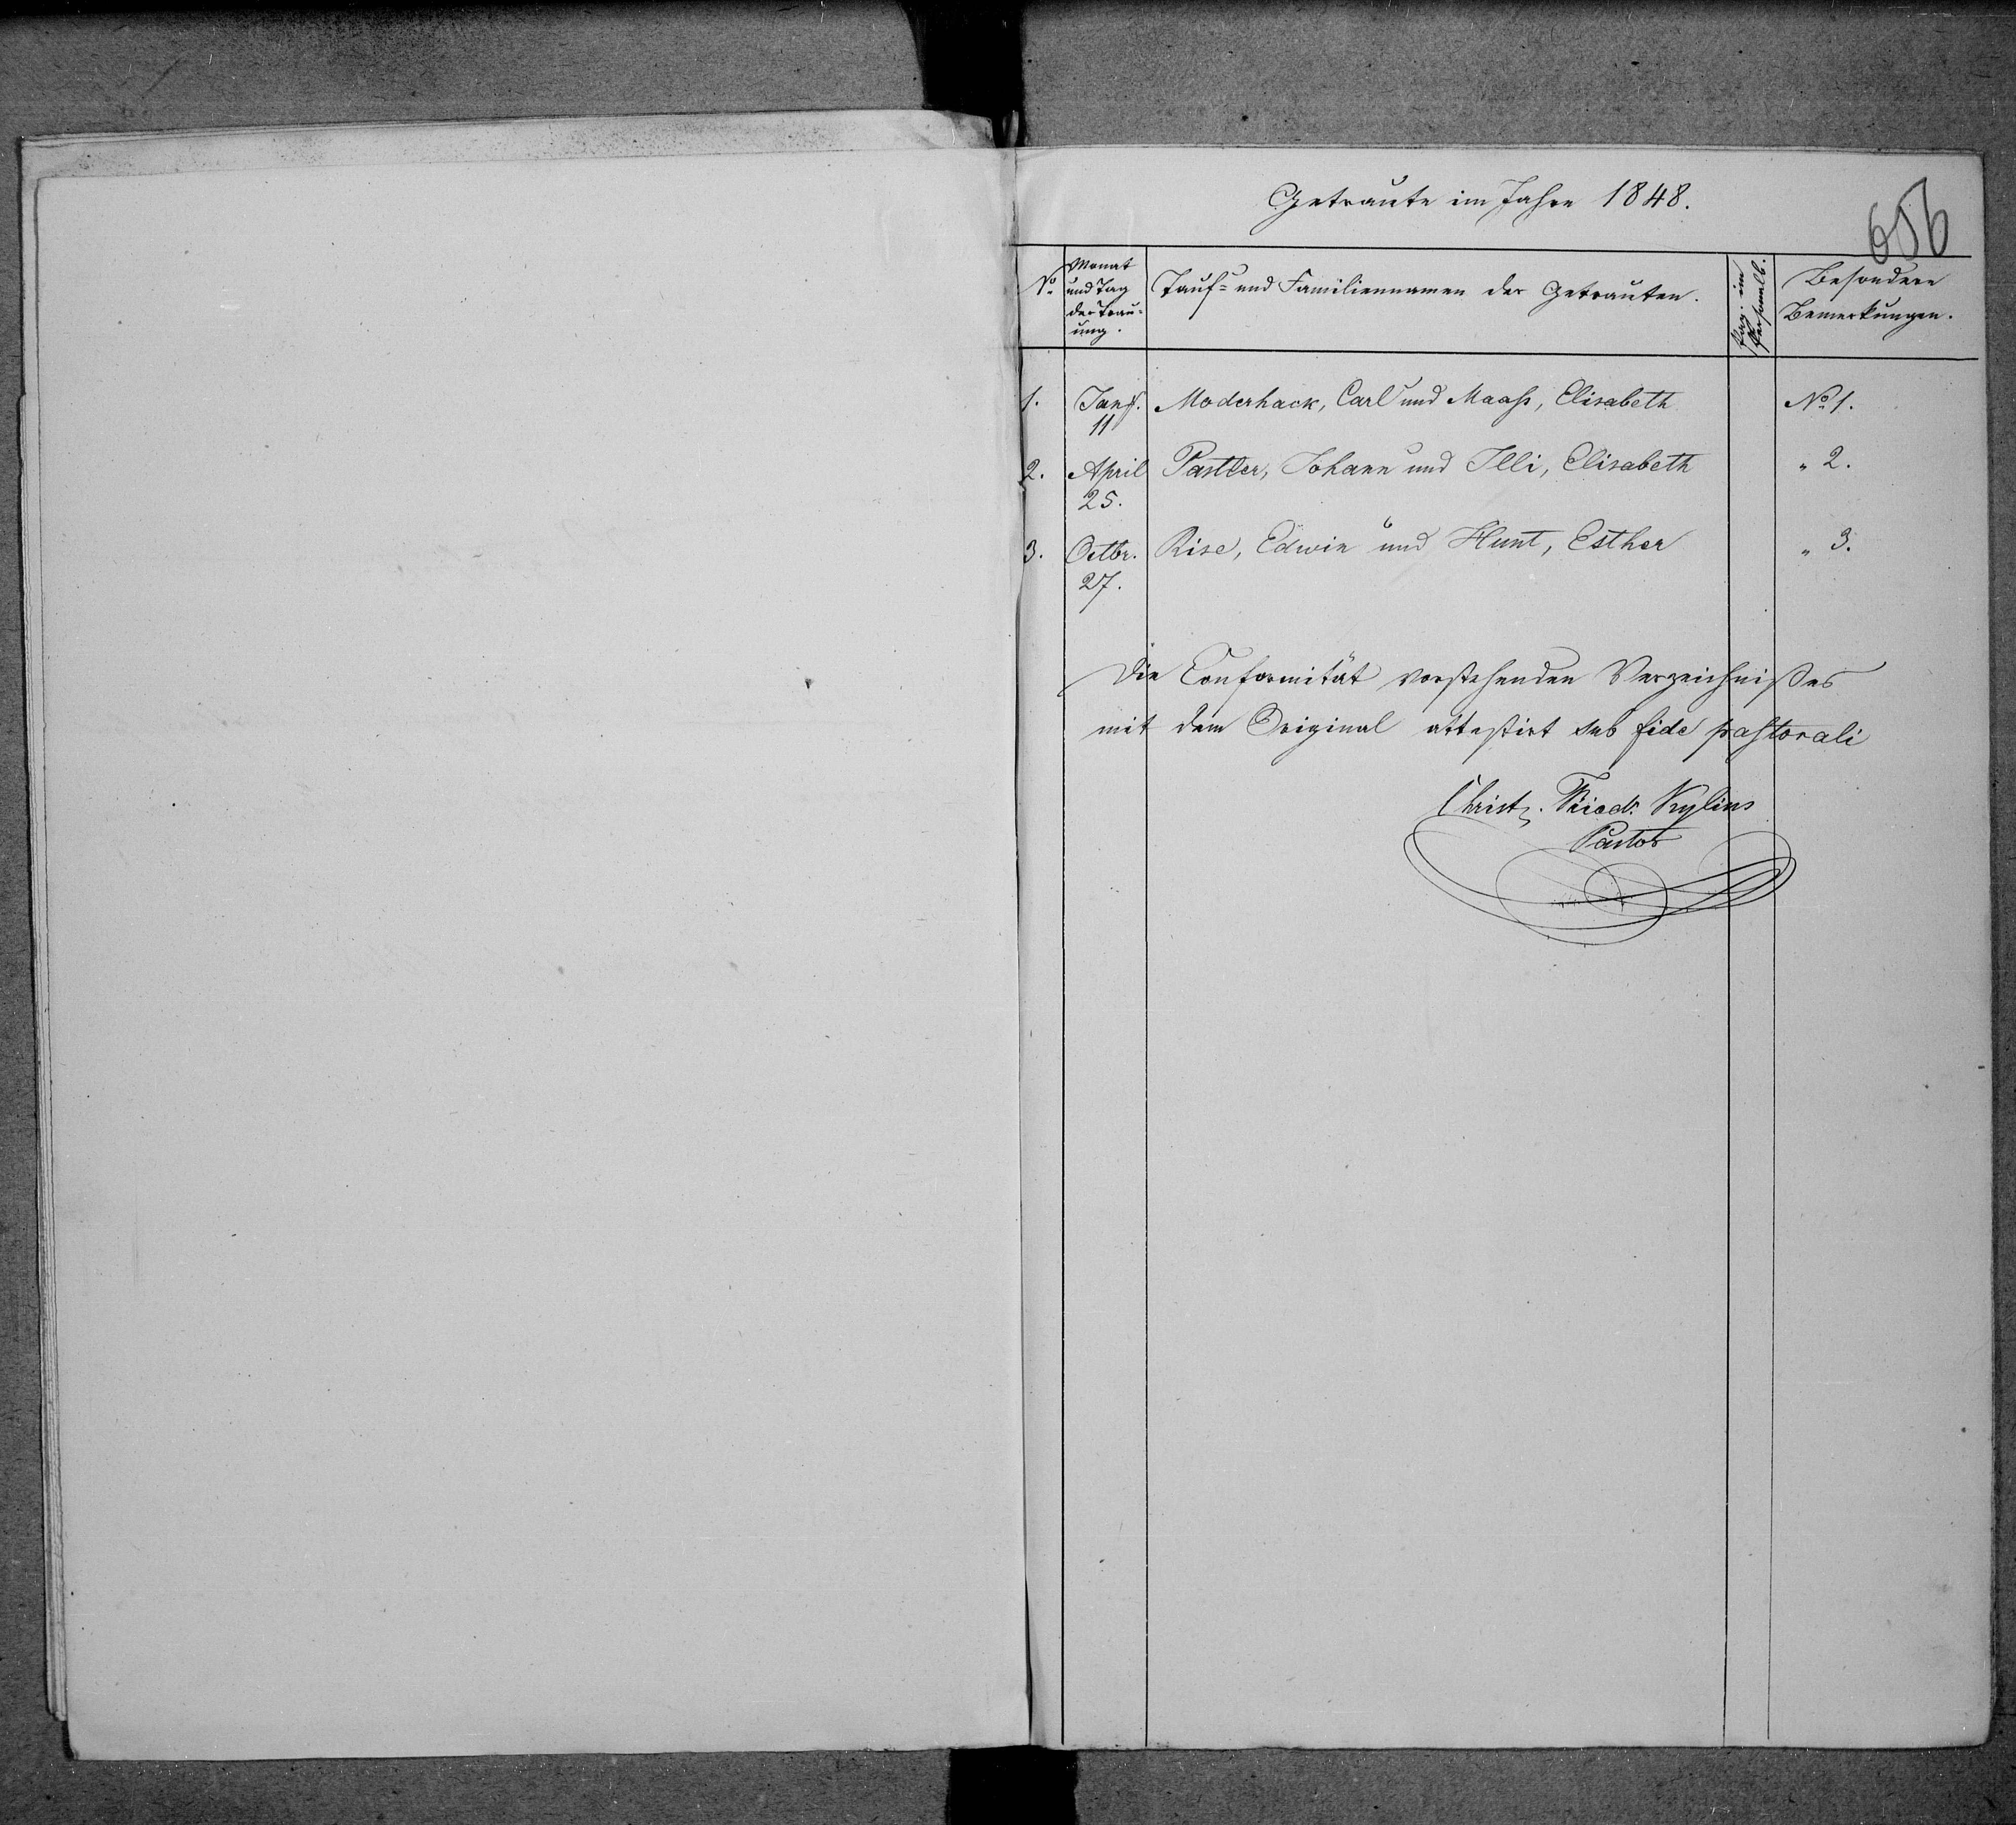 Getraute im Jahre 1848.
656
No. Monat und Tag der Trau- ung. Tauf- und Familiennamen der Getrauten. Pag. im Personalb. Besondere Bemerkungen.
1. Jan. 11 Moderhack, Carl und Maaß, Elisabeth No 1.
2. April 25. Pastler, Johann und Illi, Elisabeth " 2.
3. Octbr. 27. Rise, Edwin und Hunt, Esther " 3.
Die Conformität vorstehenden Verzeichnißes
mit dem Original attestirt sub fide pastorali
Christ. Friedr. Kylius
Pastor